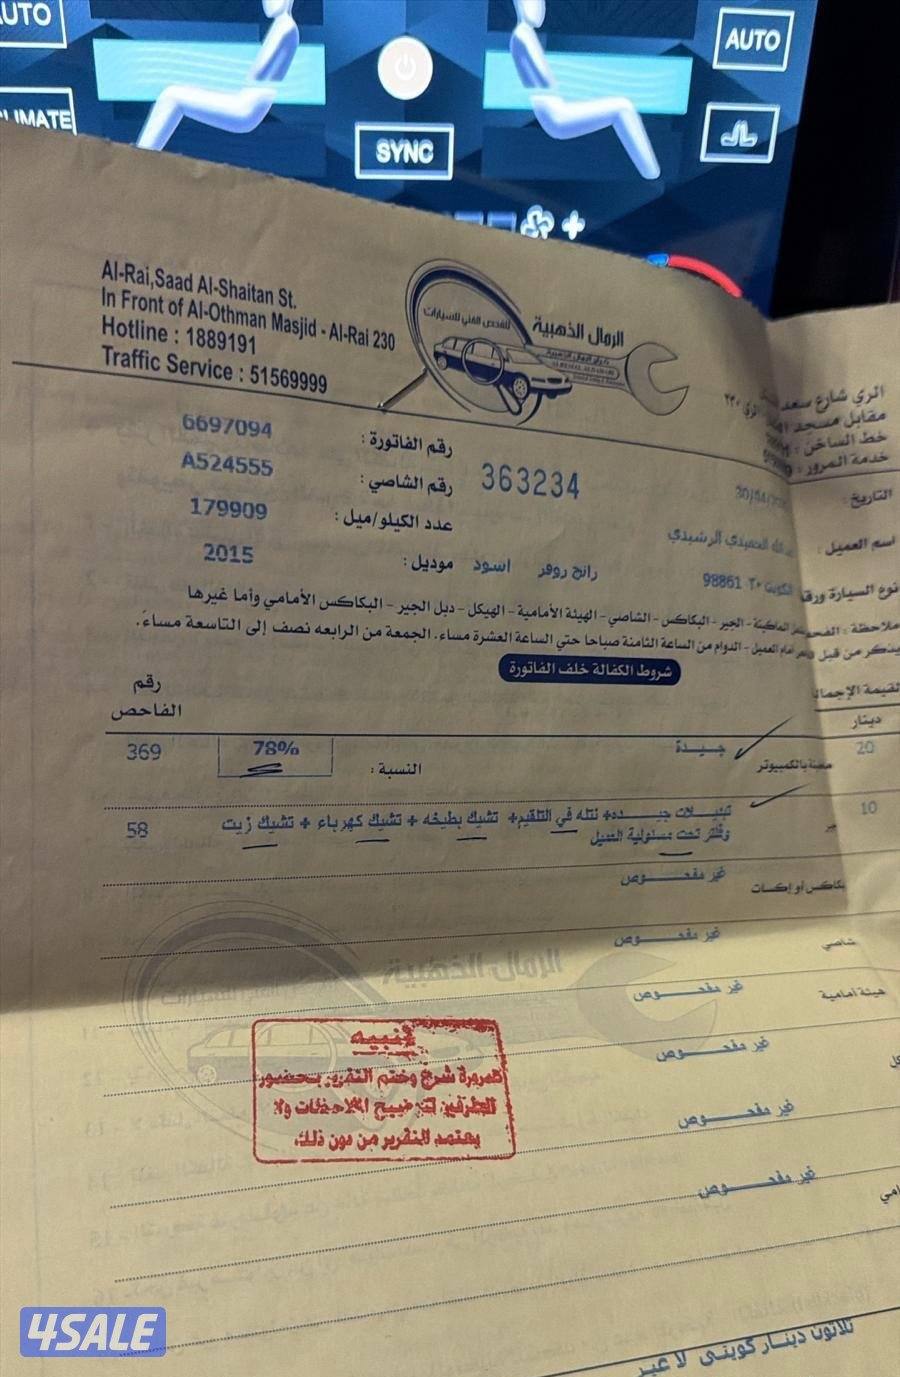 AUTO
AUTO
CLIMATE
SYNC
Al-Rai,Saad Al-Shaitan St.
In Front of Al-Othman Masjid - Al-Rai 230
Hotline : 1889191
Traffic Service : 51569999
الرمال الذهبية
للفحص الفني للسيارات
الري شارع سعد
مقابل مسجد
خط الساخن :
خدمة المرور :
رقم الفاتورة : 6697094
363234
التاريخ :
رقم الشاصي : A524555
اسم العميل : الحميدي الرشيدي
عدد الكيلو/ميل : 179909
نوع السيارة ورقم الكويت ٢٠- 98861 رانج روفر اسود موديل : 2015
ملاحظة : الماكينة - الجير - البكاكس - الشاصي - الهيئة الأمامية - الهيكل - دبل الجير - البكاكس الأمامي وأما غيرها
يذكر من قبل أمام العميل - الدوام من الساعة الثامنة صباحا حتي الساعة العشرة مساء. الجمعة من الرابعه نصف إلى التاسعة مساءً.
شروط الكفالة خلف الفاتورة
القيمة الإجمالية
دينار
رقم
الفاحص
20 بالكمبيوتر جيـــدة النسبة : 78% 369
10 جير تبديـــلات جيـــده+ نتله في التلقيم+ تشيك بطيخه + تشيك كهرباء + تشيك زيت 58
وفلتر تحت مسئولية العميل
بكاكس أو إكسات غير مفحـــــوص
شاصي غير مفحـــــوص
هيئة أمامية غير مفحـــــوص
غير مفحـــــوص
غير مفحـــــوص
غير مفحـــــوص
تنبيه
ضرورة شرح وختم التقرير بحضور
الطرفين لتوضيح الملاحظات ولا
يعتمد التقرير من دون ذلك.
ثلاثون دينـار كويتي لا غير
4SALE